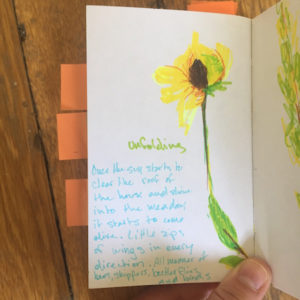 unfolding
Once the sun starts to
clear the roof of
the house and shine
into the meadow
it starts to come
alive. Little zips
of wings in every
direction. All manner of
bees, skippers, butterflies
and birds